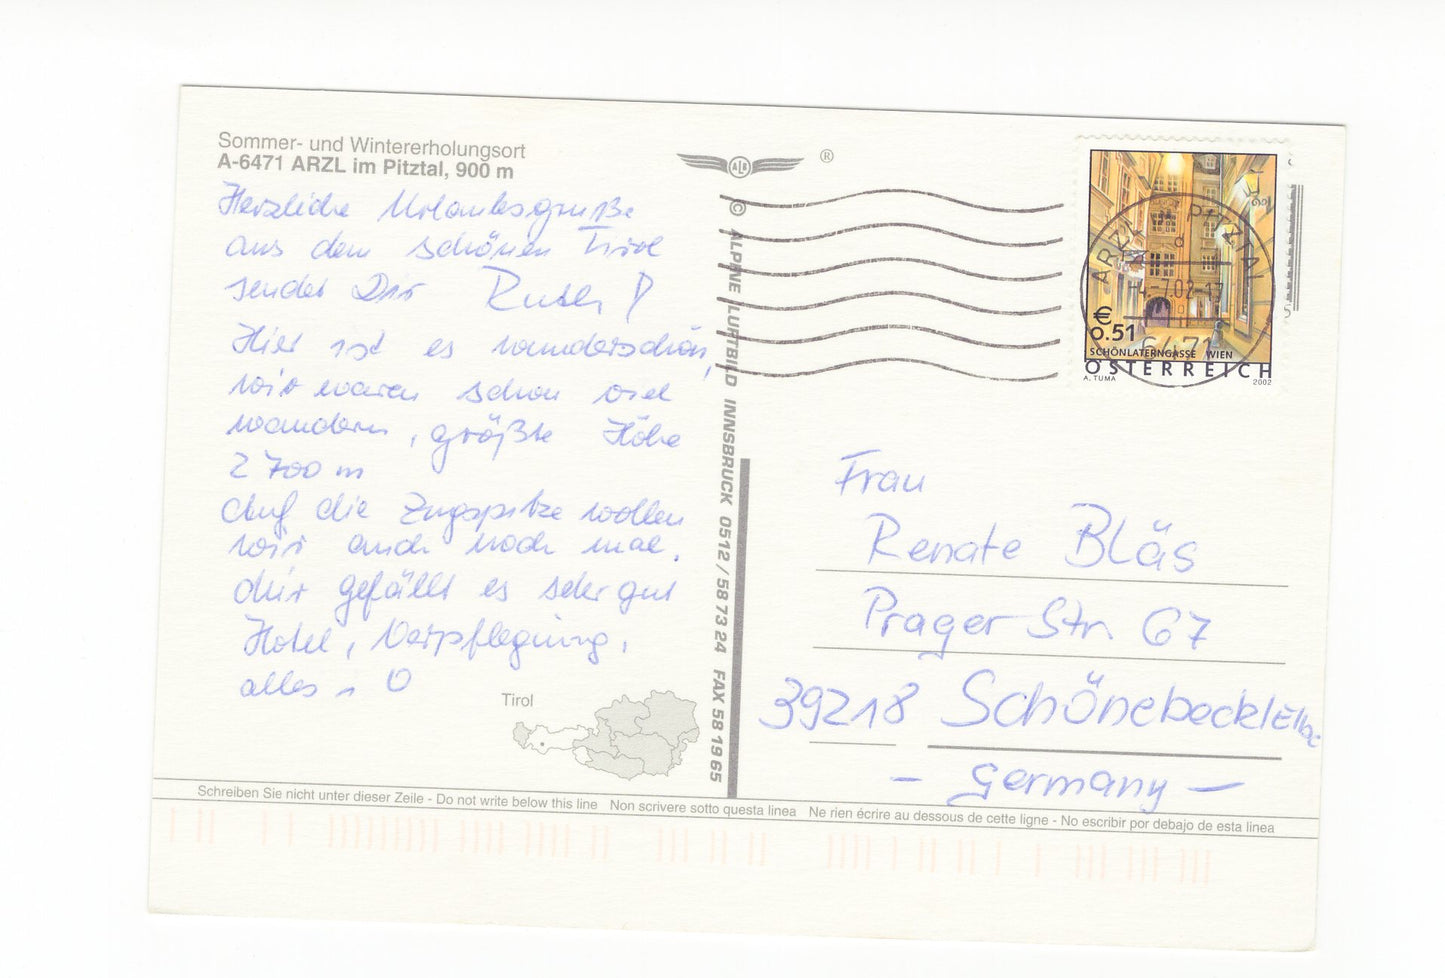 Sommer- und Wintererholungsort
A-6471 ARZL im Pitztal, 900 m
Herzliche Urlaubsgrüße
aus dem schönen Tirol
sendet Dir Ruth!
Hier ist es wunderschön,
wir waren schon viel
wandern, größte Höhe
2700 m
Auf die Zugspitze wollen
wir auch noch mal.
Mir gefällt es sehr gut
Hotel, Verpflegung,
alles
Tirol
ALB ®
© ALPINE LUFTBILD INNSBRUCK 0512 / 58 73 24 FAX 58 19 65
ARZL PITZTAL
-4.-7.02-17
6471
€
0.51
SCHÖNLATERNGASSE WIEN
ÖSTERREICH
A. TUMA 2002
Frau
Renate Bläs
Prager Str. 67
39218 Schönebeck/Elbe
- Germany -
Schreiben Sie nicht unter dieser Zeile - Do not write below this line Non scrivere sotto questa linea Ne rien écrire au dessous de cette ligne - No escribir por debajo de esta linea